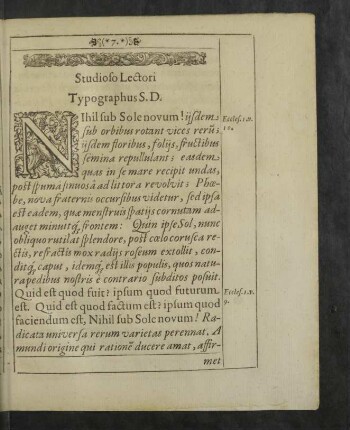 (*7.*)
Studioso Lectori
Typographus S. D.
NIhil sub Sole novum! iisdem
sub orbibus rotant vices rerũ;
iisdem floribus, folijs, fructibus
semina repullulant; easdem
quas in se mare recipit undas,
post spuma sinuosâ ad littora revolvit; Phœ-
be, nova fraternis occursibus videtur, sed ipsa
est eadem, quæ menstruis spatijs cornutam ad-
auget minuitq́; frontem: Quin ipse Sol, nunc
obliquo rutilat splendore, post cælo corusca re-
ctis, refractis mox radijs roseum extollit, con-
ditq́; caput, idemq́; est illis populis, quos natu-
ra pedibus nostris è contrario subditos posuit.
Quid est quod fuit? ipsum quod futurum
est. Quid est quod factum est? ipsum quod
faciendum est, Nihil sub Sole novum! Ra-
dicata universa rerum varietas perennat. A
mundi origine qui rationẽ ducere amat, affir-
met
Eccles. 1. v.
10.
Eccles. 1. v.
9.